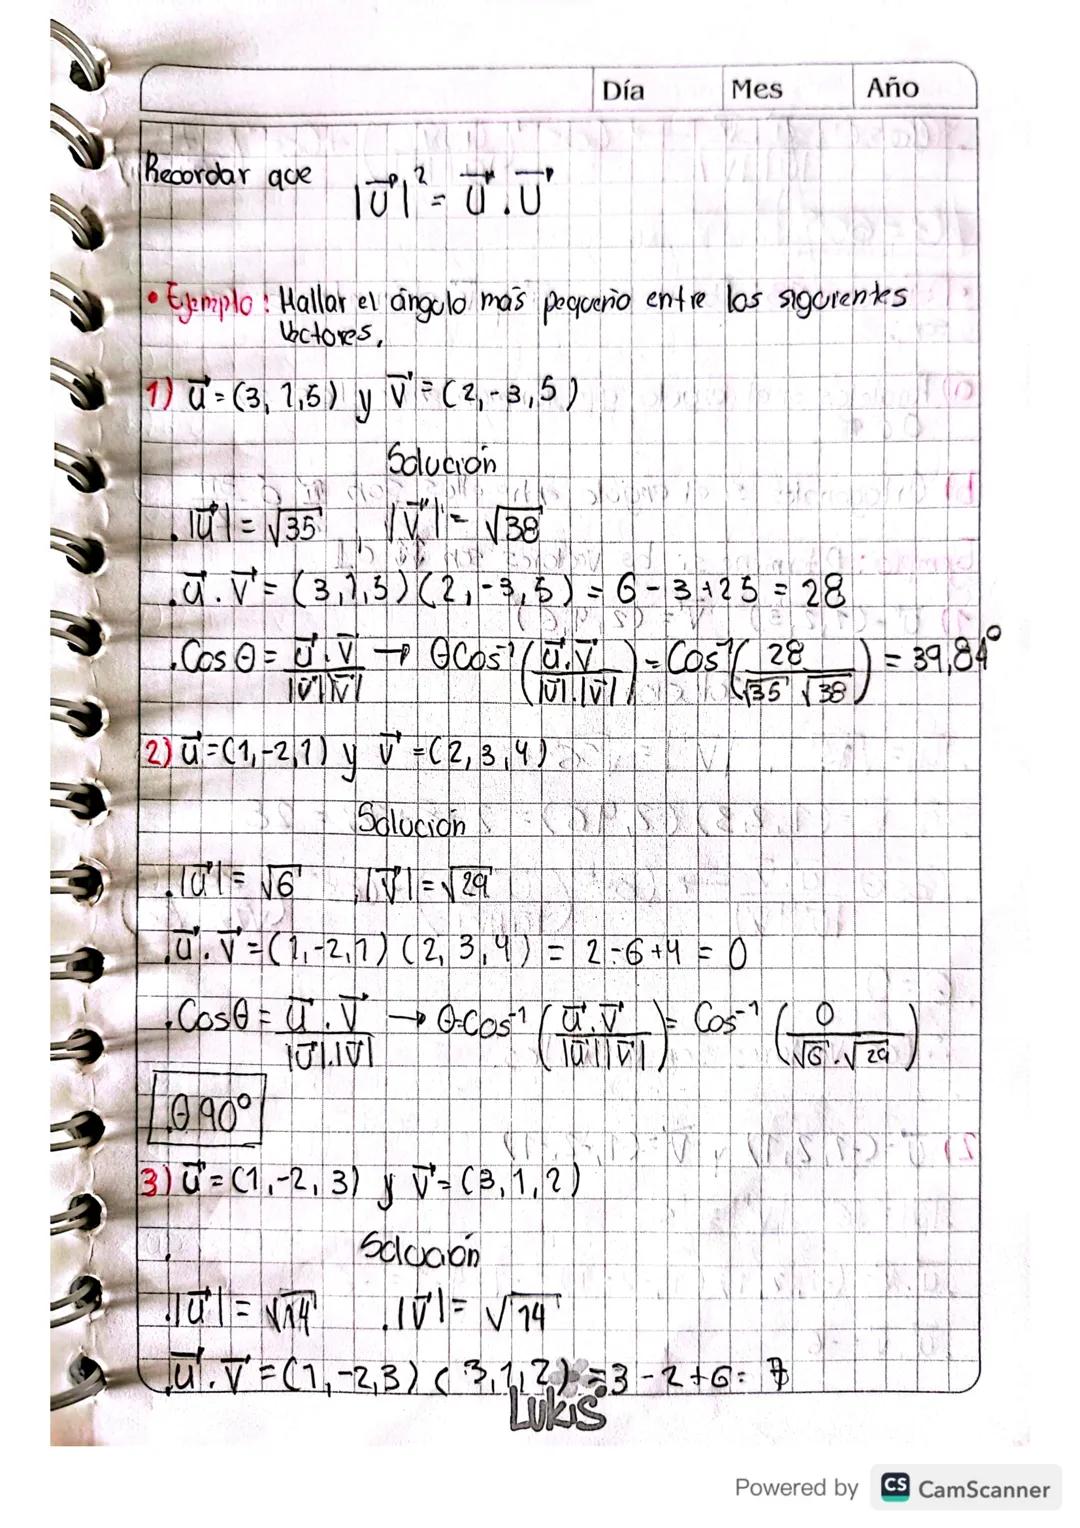 Día Mes Año
Recordar que |u⃗|² = u⃗ . u⃗
• Ejemplo: Hallar el ángulo más pequeño entre los siguientes
Vectores,
1) u⃗ = (3, 1, 5) y v⃗ = (2, -3, 5)
Solución
. |u⃗| = √35 , |v⃗| = √38
. u⃗ . v⃗ = (3, 1, 5) (2, -3, 5) = 6 - 3 + 25 = 28
. Cos θ = u⃗ . v⃗ / |u⃗||v⃗| → θ Cos⁻¹ (u⃗ . v⃗ / |u⃗| . |v⃗|) = Cos⁻¹ (28 / √35 √38) = 39,84°
2) u⃗ = (1, -2, 1) y v⃗ = (2, 3, 4)
Solución
. |u⃗| = √6 . |v⃗| = √29
. u⃗ . v⃗ = (1, -2, 1) (2, 3, 4) = 2 - 6 + 4 = 0
. Cos θ = u⃗ . v⃗ / |u⃗| . |v⃗| → θ = Cos⁻¹ (u⃗ . v⃗ / |u⃗||v⃗|) = Cos⁻¹ (0 / √6 . √29)
θ 90°
3) u⃗ = (1, -2, 3) y v⃗ = (3, 1, 2)
Solución
. |u⃗| = √14 . |v⃗| = √14
. u⃗ . v⃗ = (1, -2, 3) (3, 1, 2) = 3 - 2 + 6 = 7
LUKIS
Powered by CS CamScanner